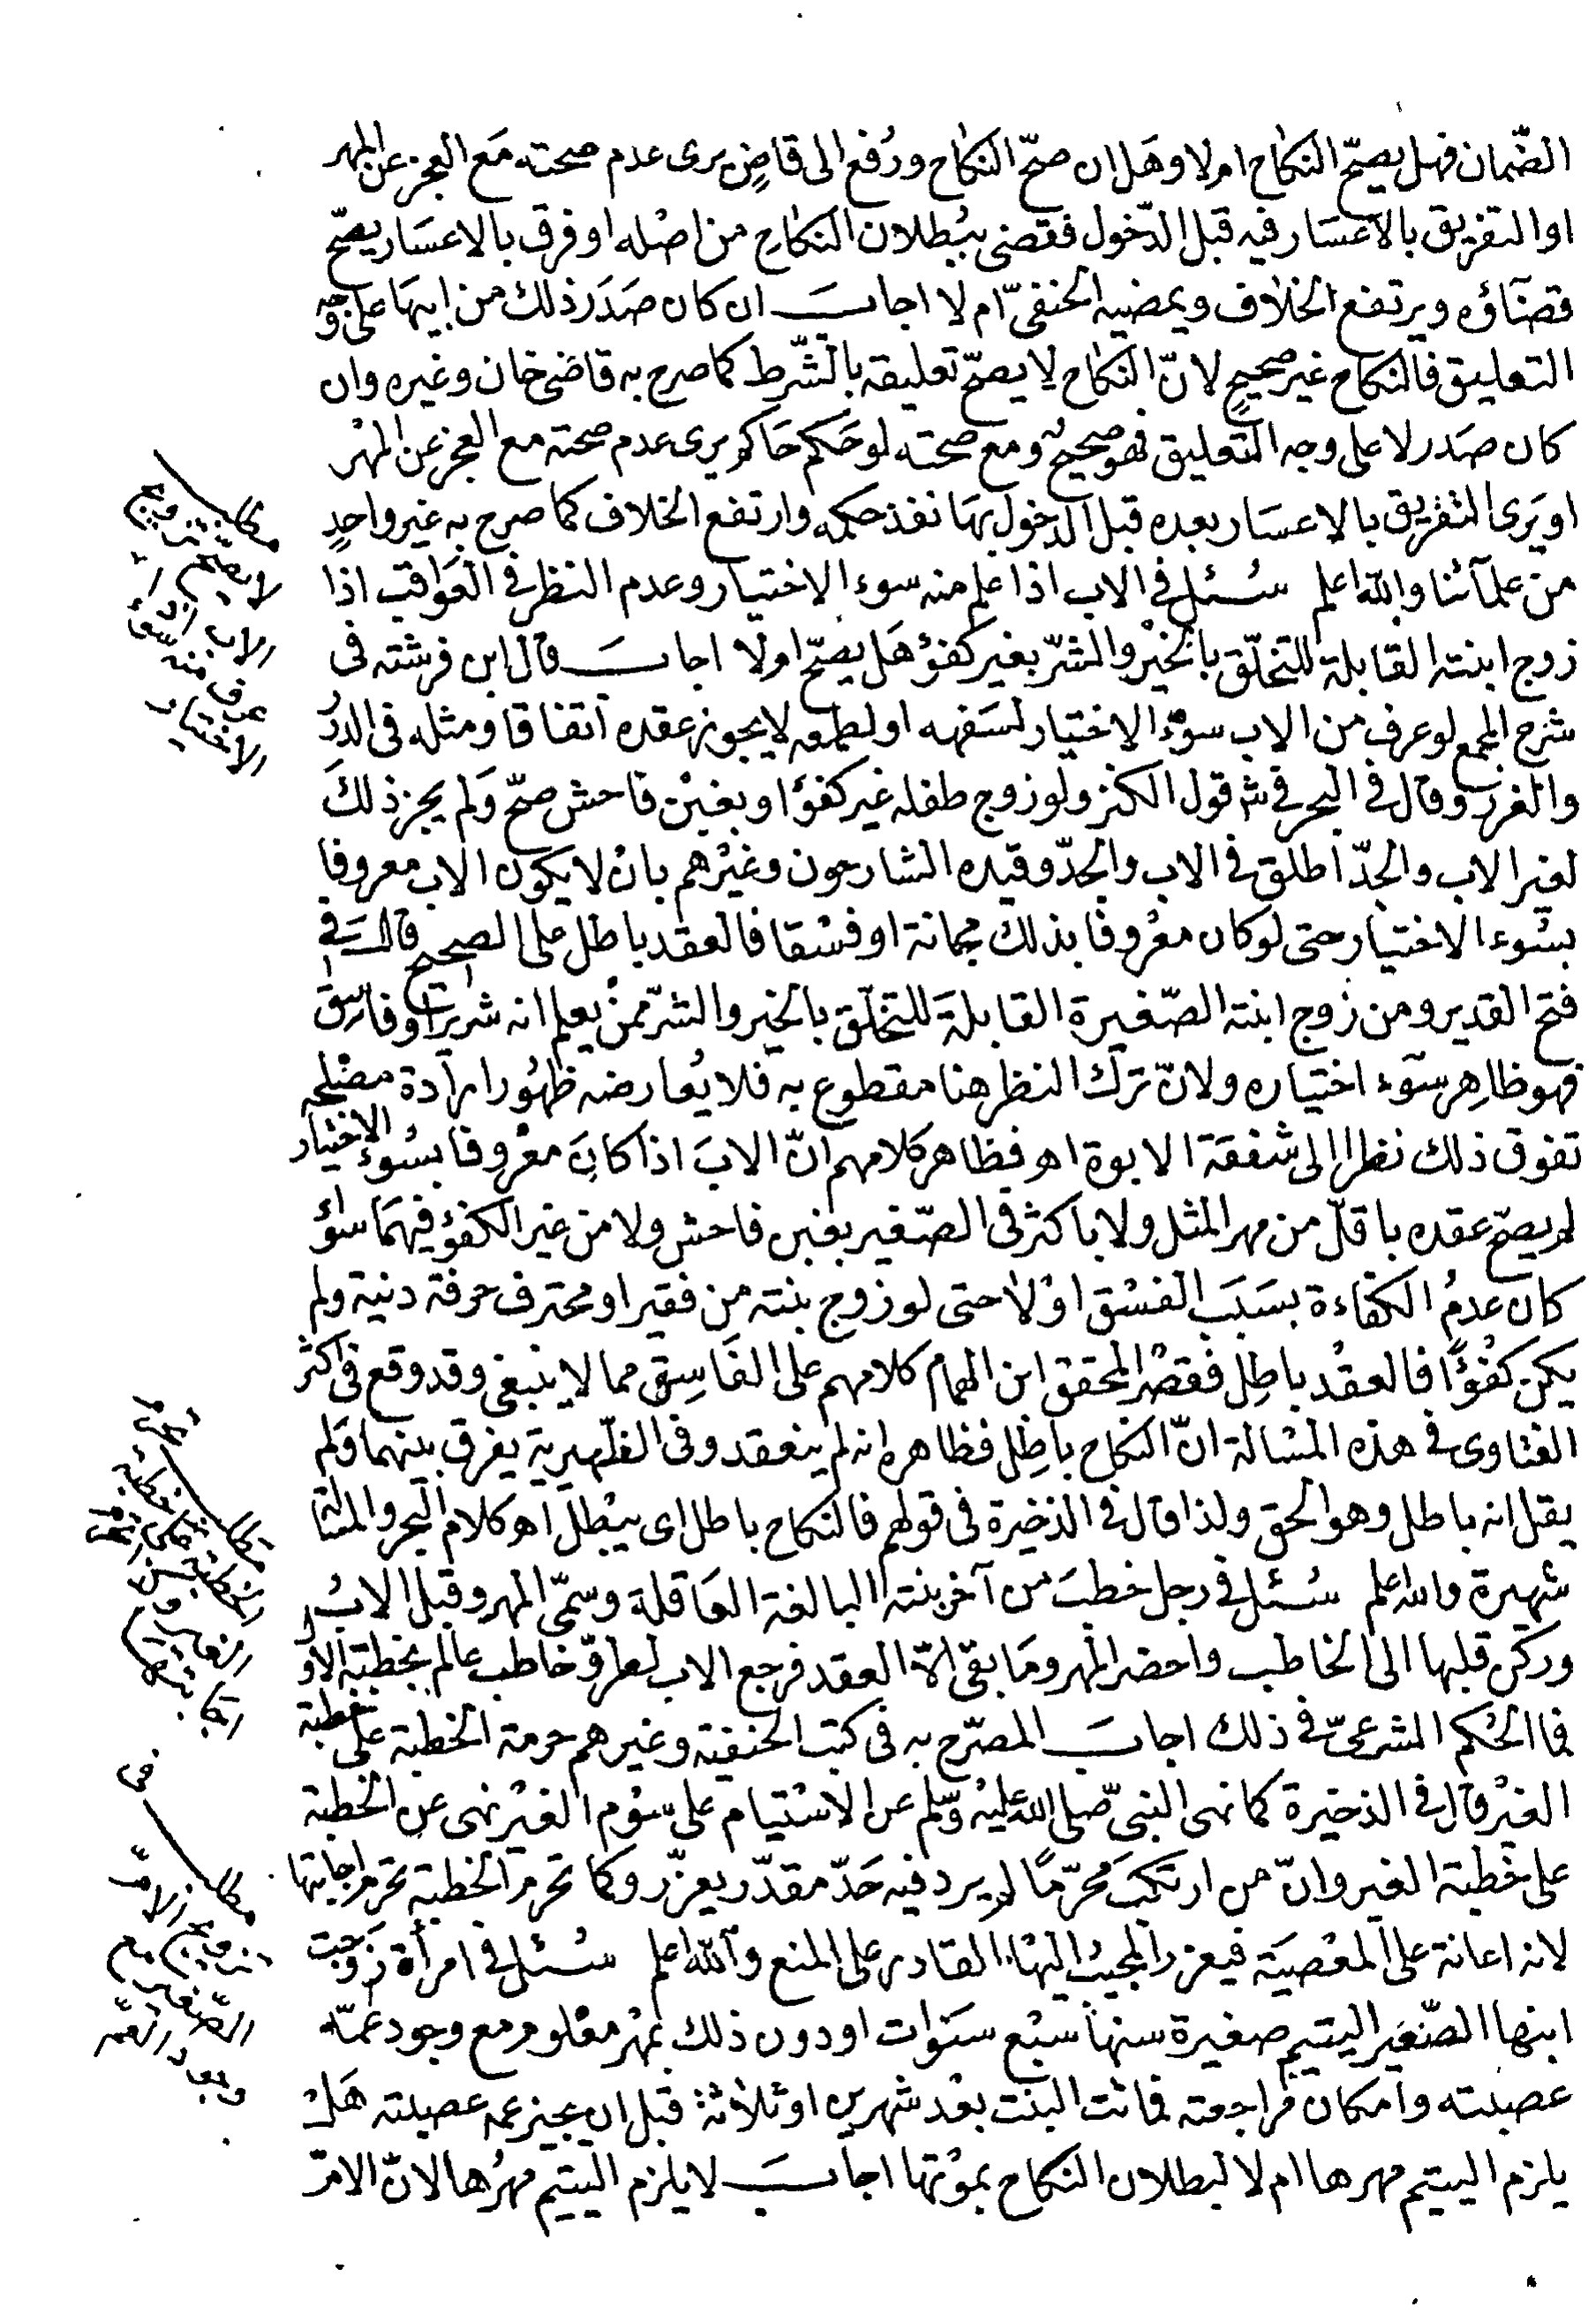 الضّمان فهل يصحّ النكاح ام لا وهَل ان صحّ النكاح ورُفع الى قاضٍ يرى عدم صحته مَع العجز عن المهر
او التفريق بالاعسَار فيه قبل الدّخول فقضى ببُطلان النكاحِ من اصْله او فرق بالاعسَار يصحّ
قضآؤه ويرتفع الخلاف ويمضيه الحنفىّ ام لا اجابَ ان كان صَدَرَ ذلك من ابيهَا على وجه
التعليق فالنكاح غير صحيحٍ لانّ النكاح لا يصحّ تعليقه بالشّرط كما صرح به قاضى خان وغيره وان
كان صَدر لا على وجه التعليق فهو صحيحٌ ومع صحته لو حَكم حَاكم يرى عدم صحته مع العجز عن المهْر
او يَرى التفريق بالاعسَار بعده قبل الدخول بهَا نفذ حكمه وارتفع الخلاف كما صرح به غير واحدٍ
من علمآئنا والله اعلم سُئل فى الاب اذا علم منه سوء الاختيار وعدم النظر فى العَواقب اذا
زوج ابنته القابلة للتخلّق بالخيْر والشرّ بغير كفؤ هَل يصحّ اولا اجابَ قال ابن فرشته فى
شرح المجمع لو عرف من الاب سوْء الاختيار لسَفهه او لطمعه لا يجوز عقده اتفاقا ومثله فى الدرر
والغرر وقال فى البحر فى شر قول الكنز ولو زوج طفله غير كفؤ او بغبْن فاحش صحّ وَلم يجز ذلكَ
لغير الاب والجدّ اطلق فى الاب والجدّ وقيده الشارحون وغيْرهم بانْ لا يكون الاب معروفا
بسُوء الاختيار حتى لو كان معْروفا بذلك مجانة او فسْقا فالعقد باطل على الصحيح قالَ فى
فتح القدير ومن زوج ابنته الصّغيرة القابلةَ للتخلّق بالخير والشرّ ممنْ يعلم انه شريرٌ او فاسقٌ
فهو ظاهِر سَوء اختياره ولانّ ترك النظر هنا مقطوع به فلا يُعارضه ظهُور ارادة مصْلحه
تفوق ذلك نظرا الى شفقة الابوة اهـ فظاهر كلامهم انّ الابَ اذا كانَ معْروفا بسُوء الاختيار
لم يصحّ عقده باقلّ من مهر المثل ولا باكثر فى الصّغير بغبن فاحش ولا من غير الكفؤ فيهمَا سواء
كان عدمُ الكفاءة بسَبَب الفسْق اوْ لا حتى لو زوج بنته من فقير او محترف حرفة دنية ولم
يكن كفُؤًا فالعقْد باطِل فقصْر المحقق ابن الهمام كلامهم على الفَاسِق مما لا ينبغى وقد وقع فى اكثر
الفتاوى فى هذه المسْالة انّ النكاح باطِل فظاهره انه لم ينعقد وفى الظّهيرية يفرق بينهما وَلم
يقل انه باطل وهو الحق ولذا قال فى الذخيرة فى قولهم فالنكاح باطل اى يبْطل اهـ كلام البحر والمسْالة
شهيرة والله اعلم سُئل فى رجل خطبَ من آخر بنته البالغة العَاقلة وسمّى المهر وقبل الابُ
وركن قلبها الى الخاطب واحضر المهر ومَا بقى الّا العقد فرجع الاب لطروّ خاطب عالم بخطبة الاول
فما الحُكم الشرعىّ فى ذلك اجابَ المصرّح به فى كتب الحنفية وغيرهم حرمة الخطبة على خطبة
الغيْر قال فى الذخيرة كما نهى النبىّ صلى الله عليه وسلّم عن الاسْتيام على سَوْم الغيْر نهى عن الخطبة
على خطبة الغير وانّ من ارتكبَ محرّمًا لم يرد فيه حَدّ مقدّر يعزّر وكما تحرم الخطبة تحرم اجابتها
لانه اعانة على المعْصيَة فيعزر المجيبُ اليْها القادر على المنع والله اعلم سُئل فى امرأة زَوّجت
ابنها الصّغيَر اليتيم صغيرة سنهاَ سبْع سنَوات او دون ذلك بمهْر معْلوم مع وجود عَمّه
عصبَته وامكان مُراجعته فماتت البنْت بعْد شهرين او ثلاثة قبل ان يجيز عمه عصبته هَلْ
يلزم اليتيم مهرها ام لا لبطلان النكاح بموْتها اجابَ لا يلزم اليتيم مهرُها لانّ الامّ
مطلب تزويج
لا يصح
الاب اذا
عرف منه سوء
الاختيار
مطلب
الخطبة على خطبة
الغير
مطلب فى
تزويج الامّ
الصّغير مع
وجود العم